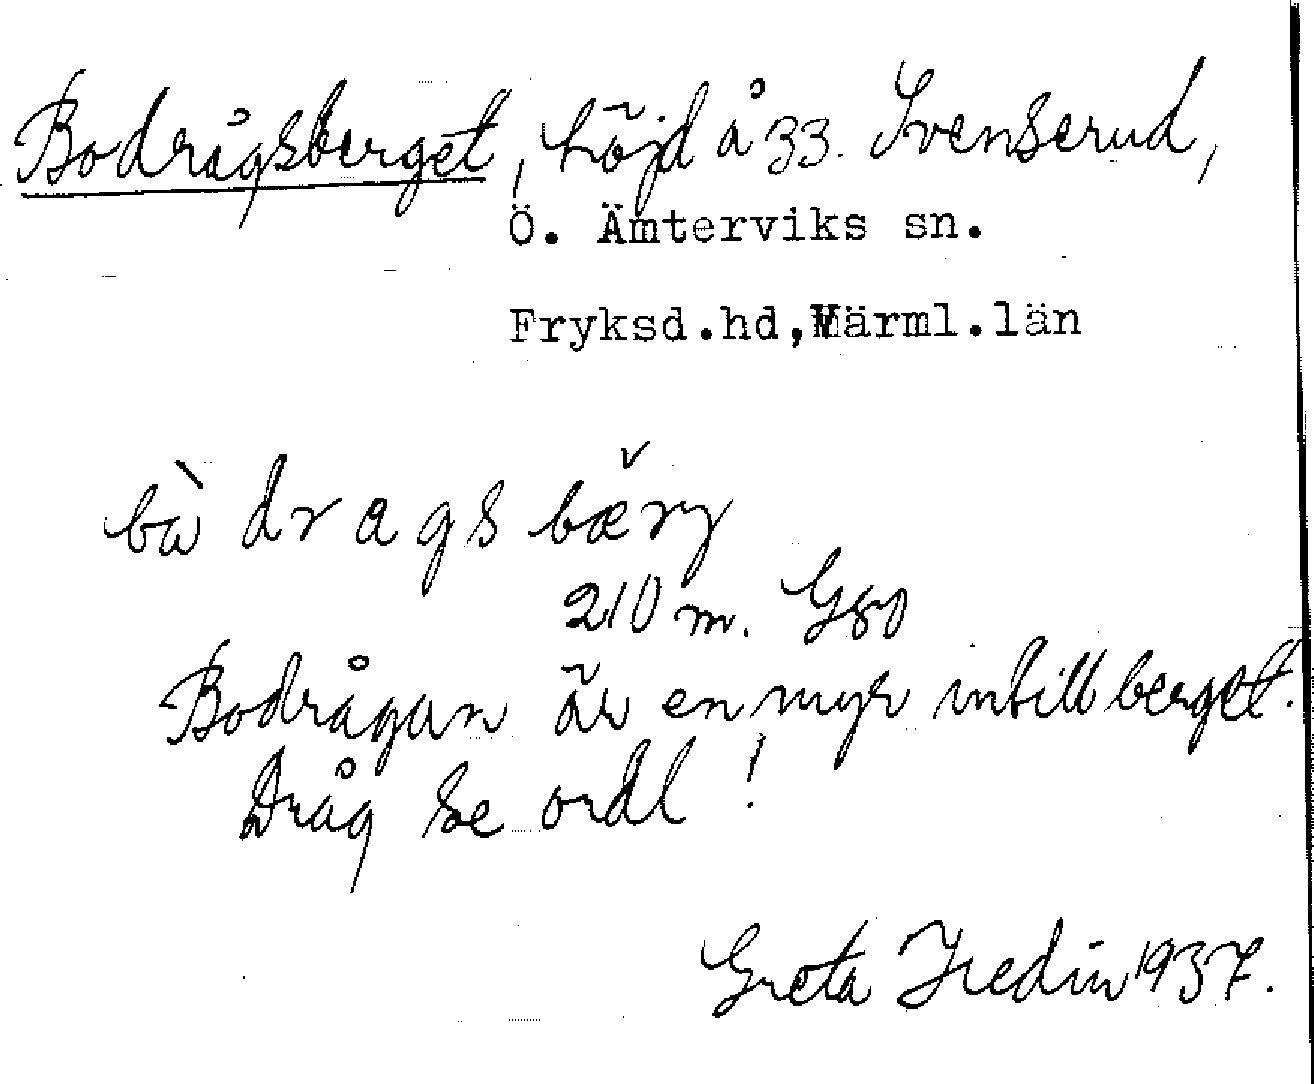 Bodrågsberget, höjd å 33. Svenserud,
Ö. Ämterviks sn.
Fryksd.hd,Värml.län
bà drags bærg
210 m. G80
Bodrågan är en myr intill berget.
Dråg se ordl!
Greta Hedin 1937.